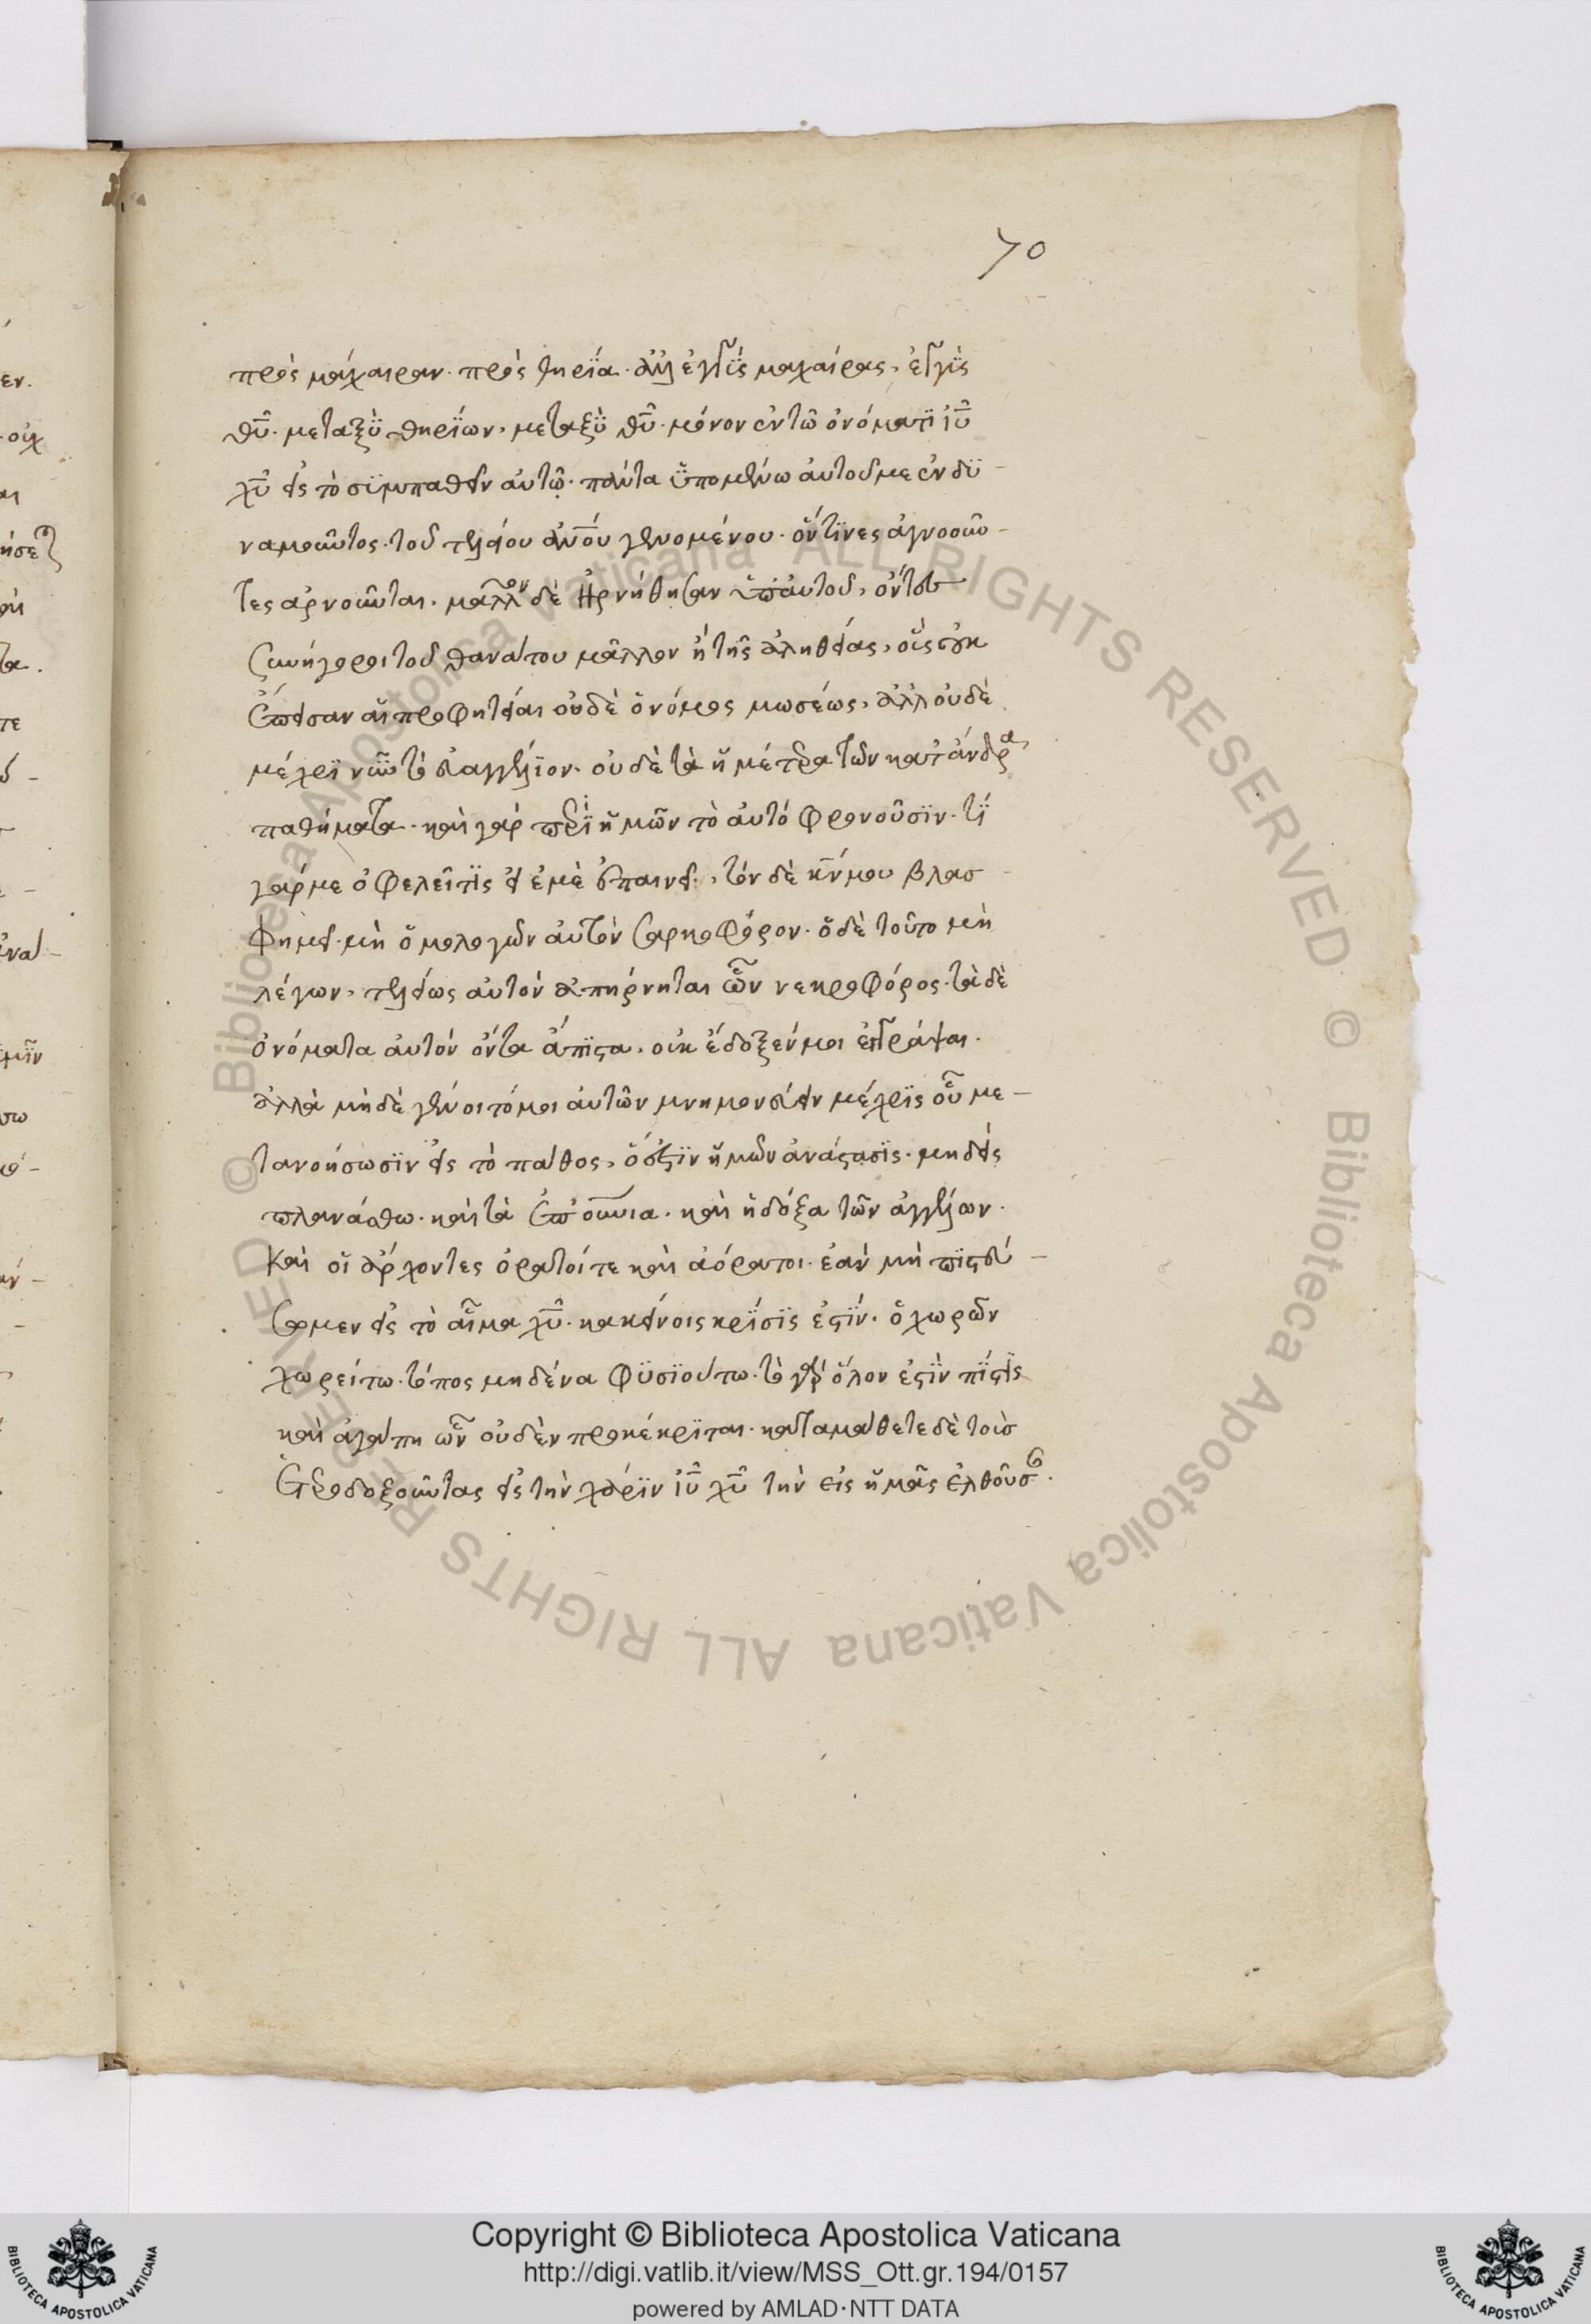 70
πρὸς μάχαιραν· πρὸς θηρΐα· ἀλλ' ἐγγῢς μαχαίρας, ἐγγῢς
θῦ· μεταξῢ θηρΐων, μεταξῢ θῦ· μόνον ἐν τῶ ὀνόματι ἰῦ
χῦ εἰς τὸ σϋμπαθεῖν ἀυτῶ· πάντα ὕπομένω ἀυτοῦ με ἐνδϋ-
ναμοῦντος· τοῦ τελείου ἀνοῦ γενομένου· ὅν τϊνες ἀγνοοῦν-
τες ἀρνοῦνται, μᾶλλον δὲ ἠρνήθησαν ὑπ' ἀυτοῦ, ὄντες
συνήγοροι τοῦ θανάτου μᾶλλον ἢ τῆς ἀληθείας, οὓς οὐκ
ἔπεισαν αἱ προφητεῖαι οὐδὲ ὁ νόμος μωσέως, ἀλλ' οὐδὲ
μέχρϊ νῦν τὸ εὐαγγέλϊον· οὐδὲ τὰ ἡμέτερα τῶν κατ' ἄνδρα
παθήματα· καὶ γὰρ περὶ ἡμῶν τὸ ἀυτό φρονοῦσϊν· τί
γάρ με ὀφελεῖ τὶς εἰ ἐμὲ ἐπαινεῖ, τόν δὲ κν̄ μου βλασ-
φημεῖ· μὴ ὁμολογῶν ἀυτὸν σαρκοφόρον· ὁ δὲ τοῦτο μὴ
λέγων, τελείως ἀυτὸν ἀπήρνηται ὢν νεκροφόρος· τὰ δὲ
ὀνόματα ἀυτόν ὄντα ἄπϊστα, οὐκ ἔδοξέν μοι ἐγγράψαι·
ἀλλὰ μὴδὲ γένοιτό μοι ἀυτῶν μνημονεύειν μέχρϊς οὗ με-
τανοήσωσϊν εἰς τὸ πάθος, ὅ ἐστϊν ἡμῶν ἀνάστασϊς· μηδεὶς
πλανάσθω· καὶ τὰ ἐπουράνια· καὶ ἡ δόξα τῶν ἀγγέλων·
Καὶ οἱ ἄρχοντες ὁρατοί τε καὶ ἀόρατοι· ἐὰν μὴ πϊστεύ-
σωμεν εἰς τὸ αἷμα χῦ· κακείνοις κρΐσϊς ἐστΐν· ὁ χωρῶν
χωρείτω· τόπος μηδένα φϋσϊούτω· τὸ γὰρ ὅλον ἐστϊν πΐστϊς
καὶ ἀγάπη ὧν οὐδὲν προκέκρϊται· καταμάθετε δὲ τοὺσ
ἑτεροδοξοῦντας εἰς τὴν χάρϊν ἰῦ χῦ τὴν εἰς ἡμᾶς ἐλθοῦσαν·
© Biblioteca Apostolica Vaticana ALL RIGHTS RESERVED © Biblioteca Apostolica Vaticana ALL RIGHTS RESERVED
Copyright © Biblioteca Apostolica Vaticana
http://digi.vatlib.it/view/MSS_Ott.gr.194/0157
powered by AMLAD·NTT DATA
BIBLIOTECA APOSTOLICA VATICANA
BIBLIOTECA APOSTOLICA VATICANA